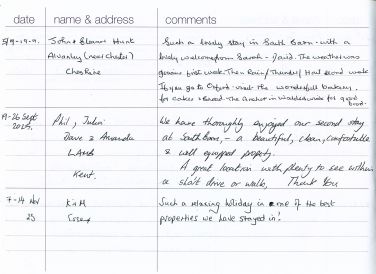 date name & address comments
5/9 - 19 - 9. John & Eleanor Hunt Such a lovely stay in South Barn - with a
Alvanley (near Chester) lovely welcome from Sarah - David. The weather was
Cheshire glorious first week. Then Rain / Thunder / Hail second week
If you go to Orford - visit the wonderful bakery
for cakes & bread. The Anchor in Walderswick for good
food.
19-26 Sept Phil, Julie We have thoroughly enjoyed our second stay
2025. Dave & Amanda at South Barn, - a beautiful, clean, comfortable
& well equipped property.
Kent. A great location with plenty to see within
a short drive or walk, Thank You
7 - 14 Nov K & M Such a relaxing holiday in one of the best
25 Essex properties we have stayed in!